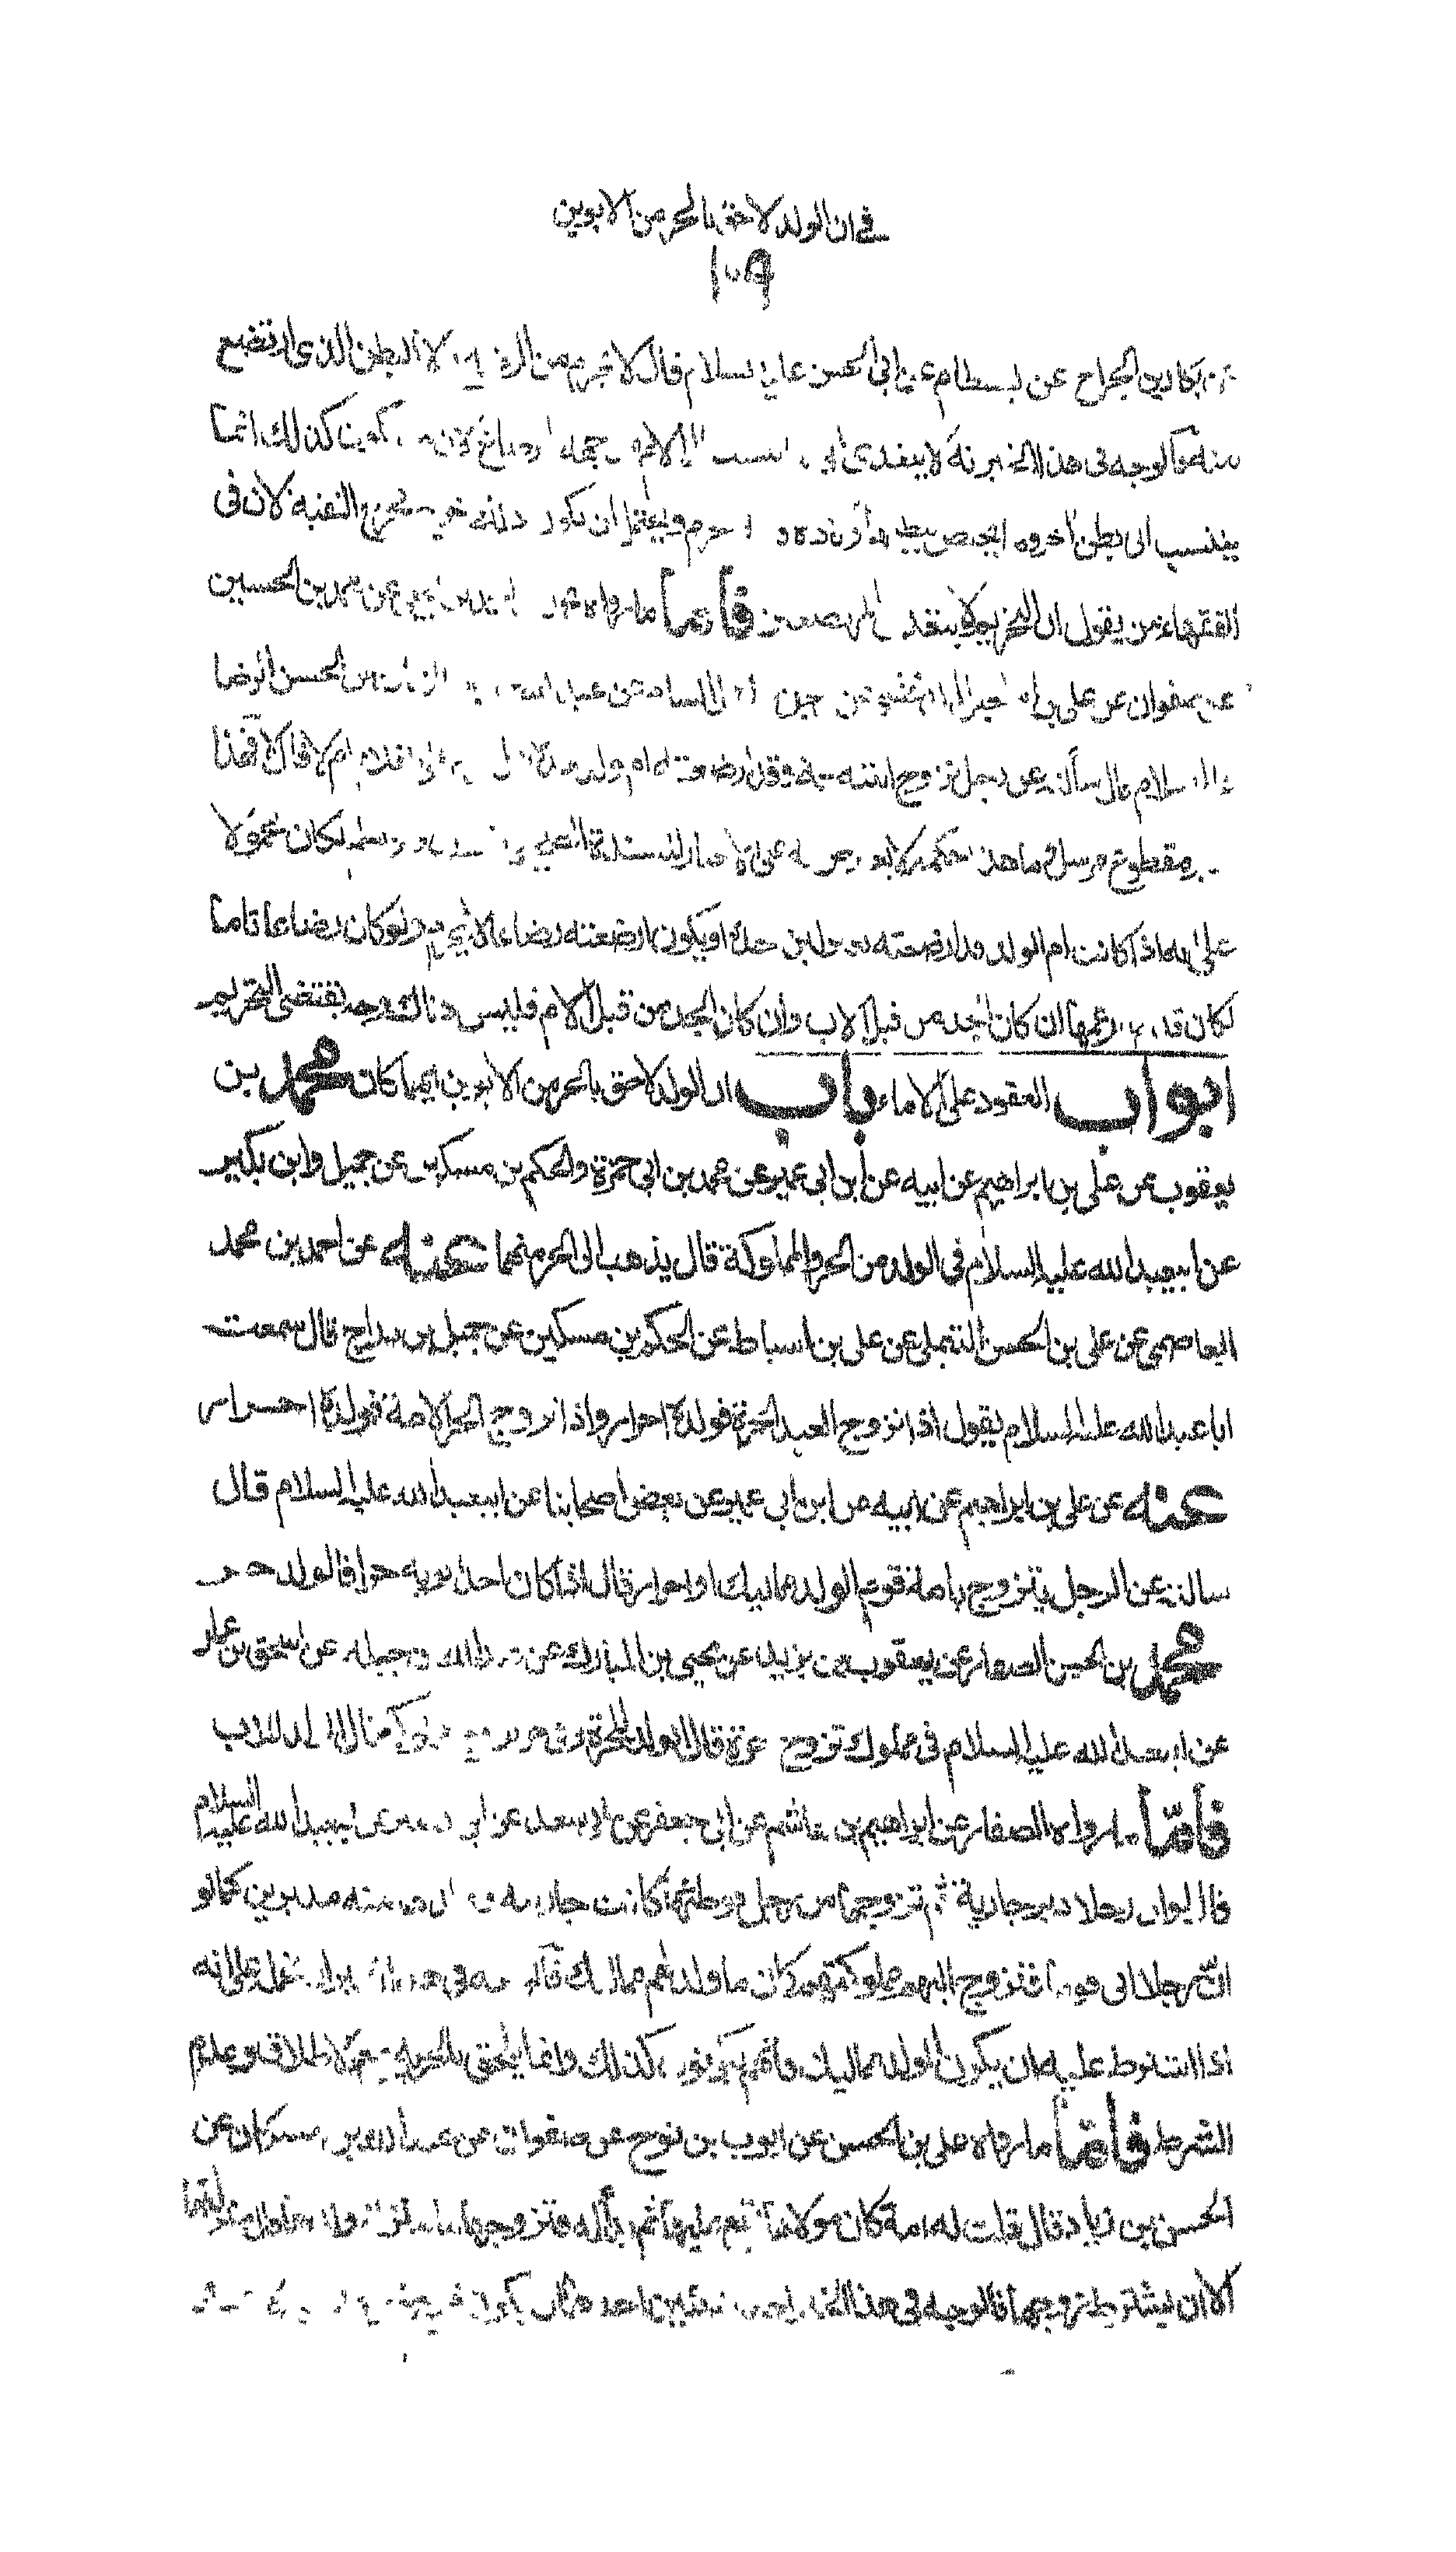 في ان الولد لاحق بالحر من الابوين
١٠٩
بن الجراح عن بسطام عن ابي الحسن عليه السلام قال لا يحرم من الرضاع الا البطن الذي ارتضع
منه فالوجه في هذا الخبر انه لا يتعدى كذلك انما
ينتسب الى بطن اخر ولم يختص ببطن حرم ويحتمل ان يكون ذلك خرج مخرج التقية لان في
الفقهاء من يقول ان التحريم لا يتعدى المرضعين فأما ما رواه عن محمد بن الحسين
عن صفوان عن علي الحسن الرضا
السلام قال سألته عن رجل تزوج ابنته وقد ارضعته ام ولد
مقطوع مرسل وما هذا حكمه لا يعترض به على الاخبار المسندة الصحيحة ولو سلم لكان محمولا
على انه اذا كانت ام الولد قد ارضعته بلبن جده او يكون ارضعته رضاعا لا يحرم ولو كان رضاعا تاما
لكان قد حرمها ان كان الجد من قبل الاب وان كان الجد من قبل الام فليس هناك وجه يقتضي التحريم
ابواب العقود على الاماء باب ان الولد لاحق بالحر من الابوين ايهما كان محمد بن
يعقوب عن علي بن ابراهيم عن ابيه عن ابن ابي عمير عن محمد بن ابي حمزة والحكم بن مسكين عن جميل وابن بكير
عن ابيعبد الله عليه السلام في الولد من الحر والمملوكة قال يذهب الى الحر منهما عنه عن احمد بن محمد
العاصمي عن علي بن الحسن التيملي عن علي بن اسباط عن الحكم بن مسكين عن جميل بن دراج قال سمعت
ابا عبد الله عليه السلام يقول اذا تزوج العبد الحرة فولده احرار واذا تزوج الحر الامة فولده احرار
عنه عن علي بن ابراهيم عن ابيه عن ابن ابي عمير عن بعض اصحابنا عن ابيعبد الله عليه السلام قال
سالته عن الرجل يتزوج بامة قوم الولد مماليك او احرار قال اذا كان احد ابويه حرا فالولد حر
محمد بن الحسن الصفار عن يعقوب بن يزيد عن يحيى بن المبارك عن عبد الله بن جبلة عن اسحق بن عمار
عن ابيعبد الله عليه السلام في مملوك تزوج حرة قال الولد للحرة وفي حر تزوج مملوكة قال الولد للاب
فأما ما رواه الصفار عن ابراهيم بن هاشم عن ابي جعفر عن ابي سعيد عن ابي بصير عن ابيعبد الله عليه السلام
قال لو ان رجلا دبر جارية ثم تزوجها من رجل فوطئها كانت جاريته وولدها منه مدبرين كما لو
ان رجلا اتى قوما فتزوج اليهم مملوكتهم كان ما ولد لهم مماليك
اذا اشترط عليه ان يكون الولد مماليك فانهم يكونون كذلك وانما يلحق بالحرية مع الاطلاق وعدم
الشرط فأما ما رواه علي بن الحسن عن ايوب بن نوح عن صفوان عن عبد الله بن مسكان عن
الحسن بن زياد قال قلت له امة كان مولاها يقع عليها ثم بدا له فزوجها ما منزلة ولدها قال بمنزلتها
الا ان يشترط زوجها فالوجه في هذا الخبر احد شيئين احدهما ان يكون